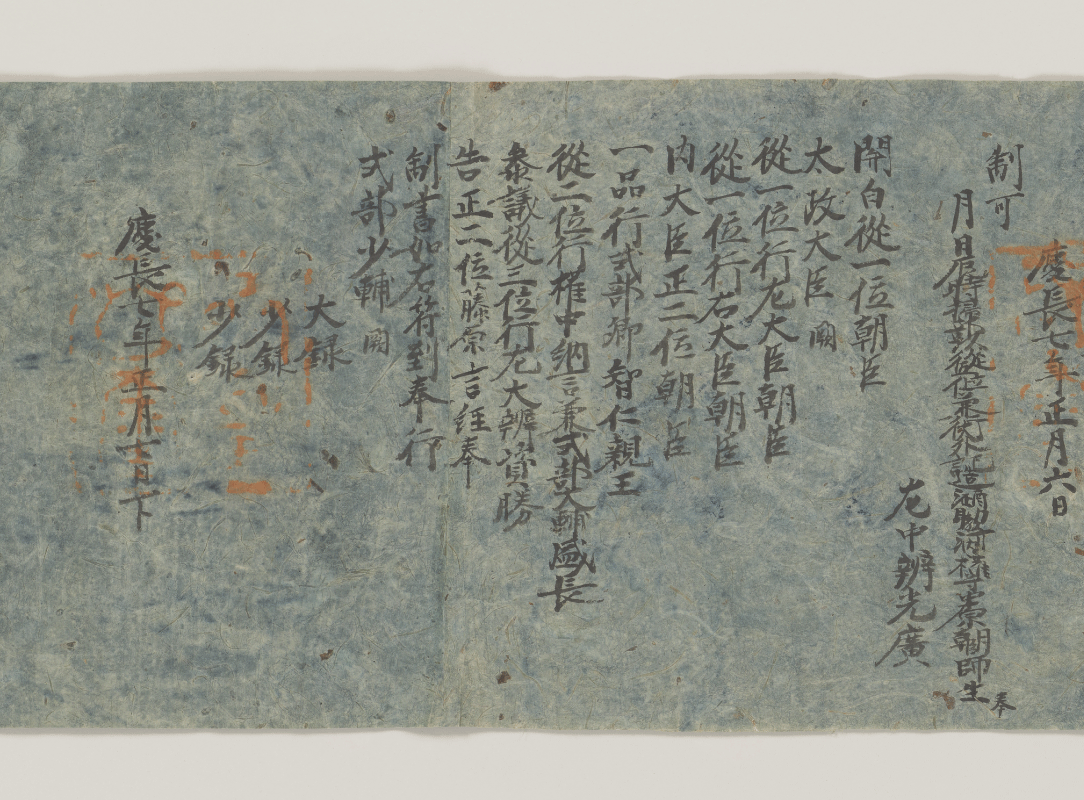 慶長七年正月六日
制可
月日辰時掃部 朝臣師生奉
左中辨光廣
関白從一位朝臣
太政大臣 闕
從一位行左大臣朝臣
從一位行右大臣朝臣
内大臣正二位朝臣
一品行式部卿智仁親王
從二位行權中納言兼式部大輔盛長
參議從三位行左大辨資勝
告正二位藤原言經奉
制書如右符到奉行
式部少輔 闕
大録
少録
少録
慶長七年正月七日下